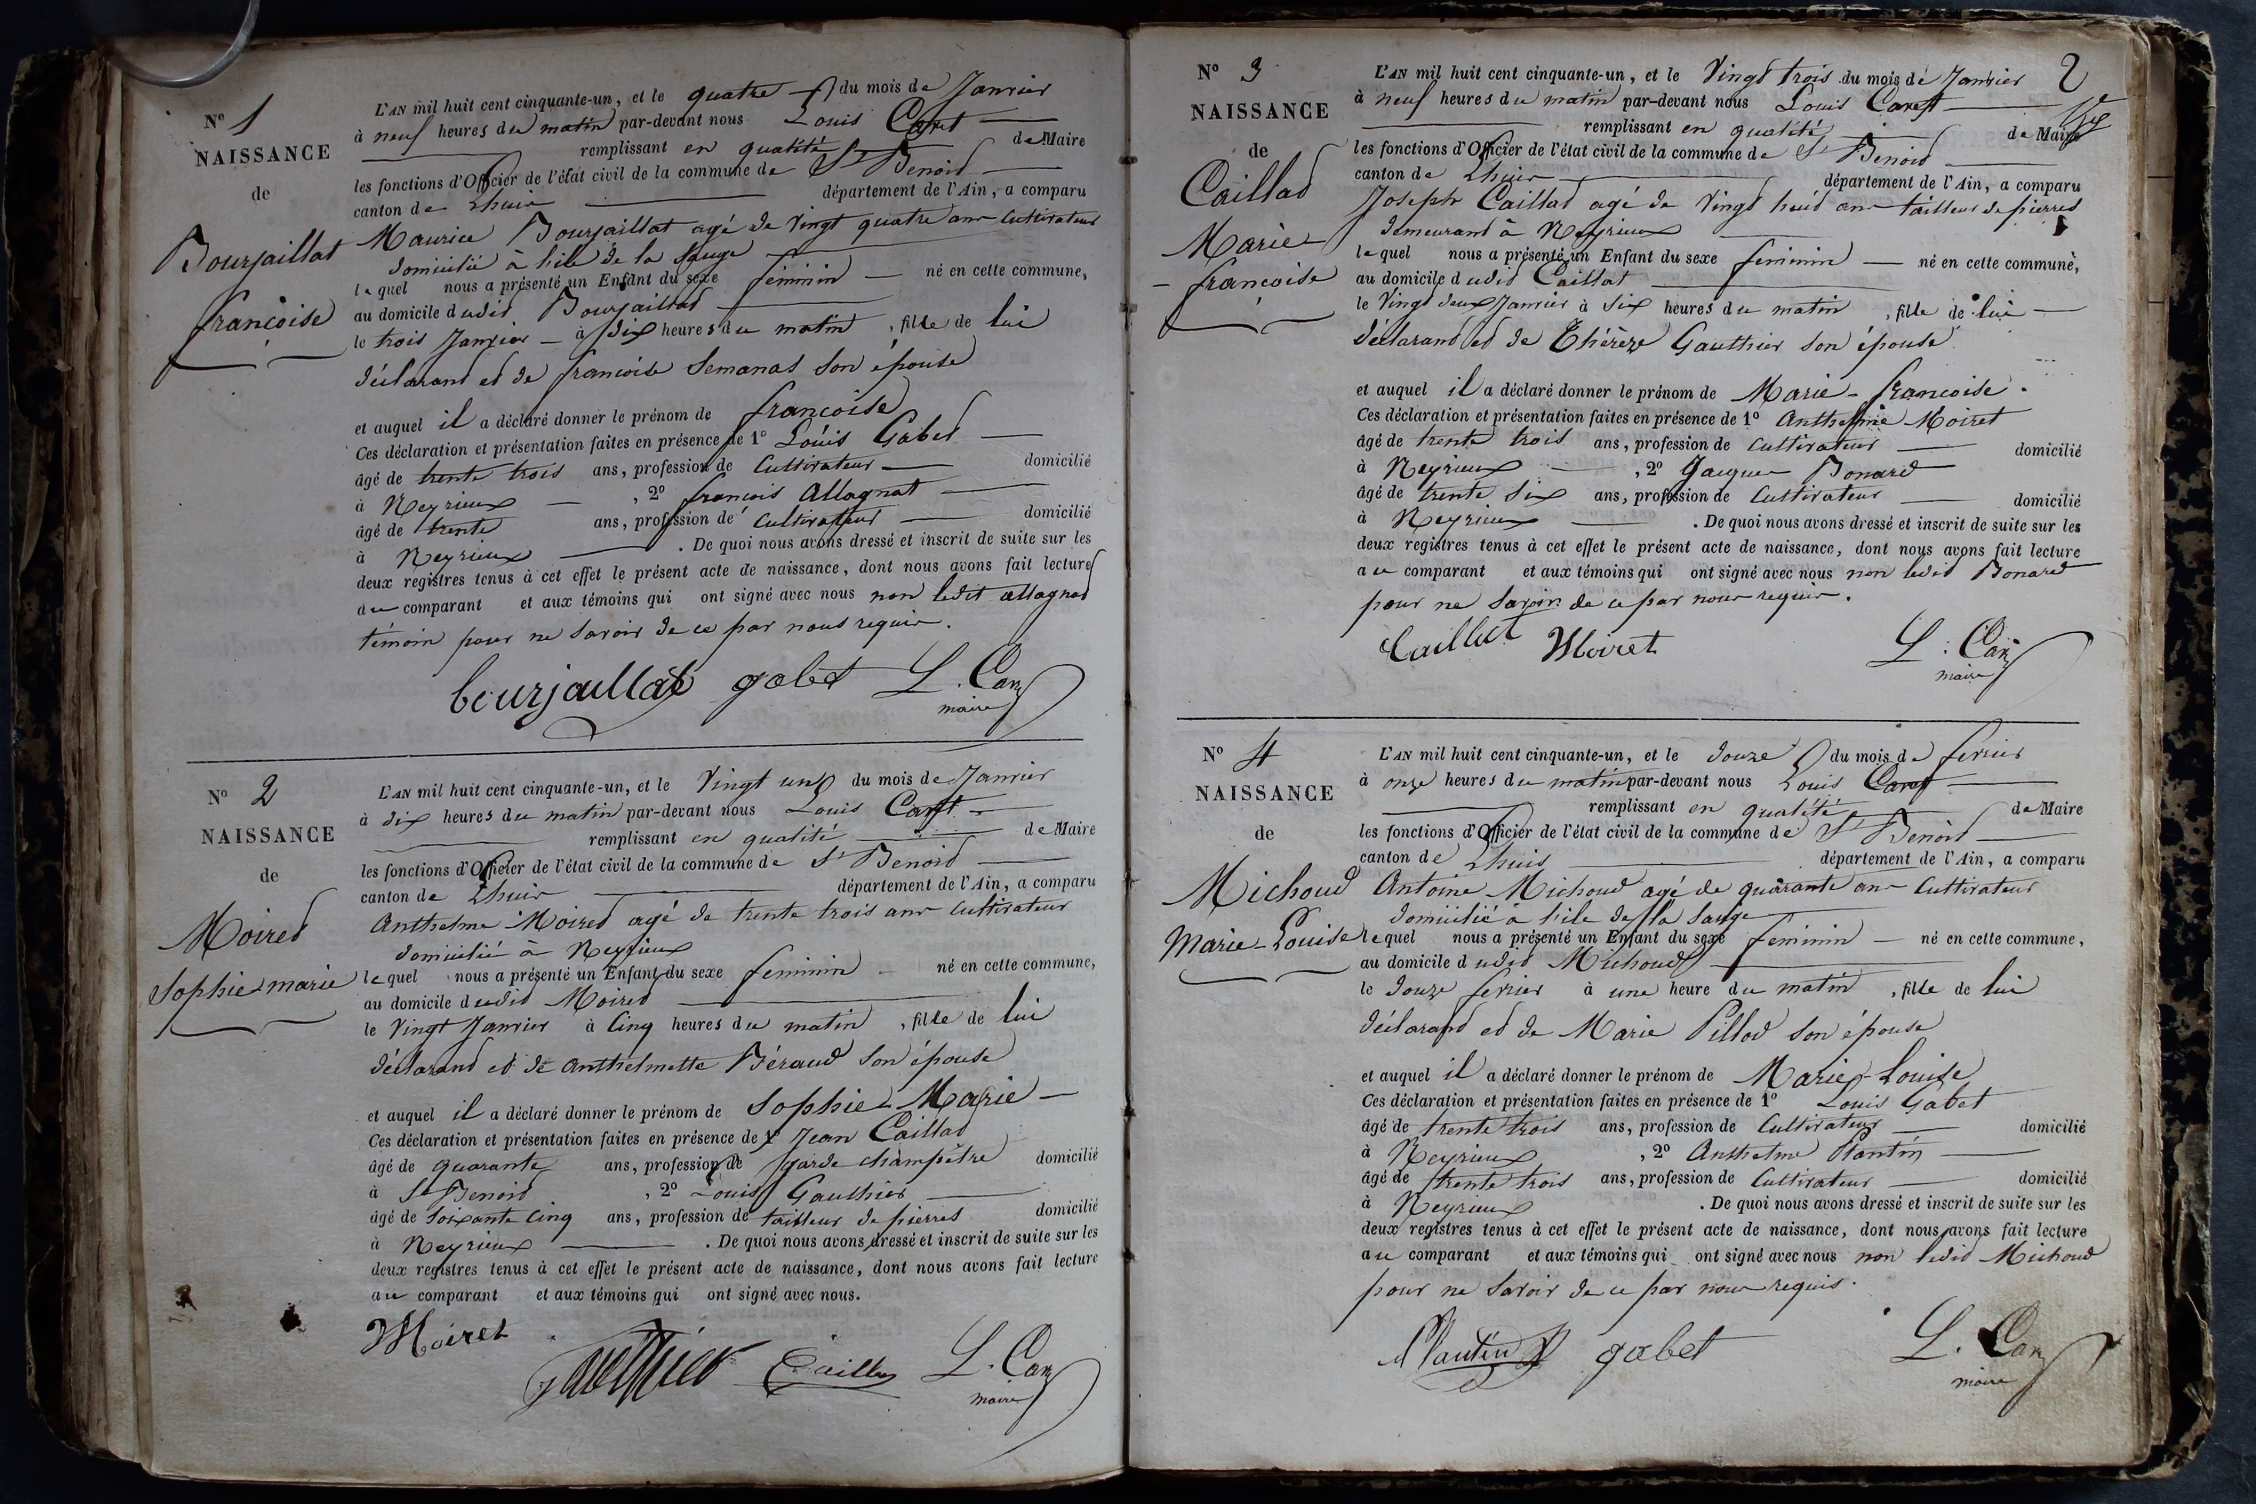 N° 1
NAISSANCE
de
Bourjaillat
françoise
L'AN mil huit cent cinquante-un, et le quatre du mois de Janvier
à neuf heures du matin par-devant nous Louis Caret
remplissant en qualité de Maire
les fonctions d'Officier de l'état civil de la commune de St Benoid
canton de Lhuis département de l'Ain, a comparu
Maurice Bourjaillat agé de Vingt quatre ans Cultivateur
domicilié à l'ile de la Sauge
lequel nous a présenté un Enfant du sexe féminin né en cette commune,
au domicile dudid Bourjaillad
le trois Janvier à dix heures du matin, fille de lui
déclarand ed de françoise Semanas son épouse
et auquel il a déclaré donner le prénom de françoise
Ces déclaration et présentation faites en présence de 1° Louis Gabed
âgé de trente trois ans, profession de Cultivateur domicilié
à Neyrieux, 2° françois Allagnat
âgé de trente ans, profession de Cultivateur domicilié
à Neyrieux. De quoi nous avons dressé et inscrit de suite sur les
deux registres tenus à cet effet le présent acte de naissance, dont nous avons fait lecture
au comparant et aux témoins qui ont signé avec nous non ledit allagnad
témoin pour ne savoir de ce par nous requis.
bourjaillat gabet L. Car
maire
N° 2
NAISSANCE
de
Moired
Sophie-marie
L'AN mil huit cent cinquante-un, et le Vingt un du mois de Janvier
à dix heures du matin par-devant nous Louis Caret
remplissant en qualité de Maire
les fonctions d'Officier de l'état civil de la commune de St Benoid
canton de Lhuis département de l'Ain, a comparu
Anthelme Moired agé de trente trois ans Cultivateur
domicilié à Neyrieux
lequel nous a présenté un Enfant du sexe féminin né en cette commune,
au domicile dudid Moired
le Vingt Janvier à Cinq heures du matin, fille de lui
déclarand ed de Anthelmette Béraud son épouse
et auquel il a déclaré donner le prénom de Sophie-Marie
Ces déclaration et présentation faites en présence de 1° Jean Caillad
âgé de quarante ans, profession de garde champêtre domicilié
à St Benoid, 2° Louis Gauthier
âgé de soixante cinq ans, profession de tailleur de pierres domicilié
à Neyrieux. De quoi nous avons dressé et inscrit de suite sur les
deux registres tenus à cet effet le présent acte de naissance, dont nous avons fait lecture
au comparant et aux témoins qui ont signé avec nous.
Moiret
gauthier Caillat L. Car
maire
2
N° 3
NAISSANCE
de
Caillad
Marie-
françoise
L'AN mil huit cent cinquante-un, et le Vingd trois du mois de Janvier
à neuf heures du matin par-devant nous Louis Caret
remplissant en qualité de Maire
les fonctions d'Officier de l'état civil de la commune de St Benoid
canton de Lhuis département de l'Ain, a comparu
Joseph Caillad agé de Vingd huid ans tailleur de pierres
demeurand à Neyrieux
lequel nous a présenté un Enfant du sexe féminin né en cette commune,
au domicile dudid Caillat
le Vingd deux Janvier à six heures du matin, fille de lui
déclarand ed de Thérèze Gauthier son épouse
et auquel il a déclaré donner le prénom de Marie-françoise.
Ces déclaration et présentation faites en présence de 1° Anthelme Moiret
âgé de trente trois ans, profession de Cultivateur domicilié
à Neyrieux, 2° Jacques Bonard
âgé de trente six ans, profession de Cultivateur domicilié
à Neyrieux. De quoi nous avons dressé et inscrit de suite sur les
deux registres tenus à cet effet le présent acte de naissance, dont nous avons fait lecture
au comparant et aux témoins qui ont signé avec nous non ledid Bonard
pour ne savoir de ce par nous requis.
Caillat Moiret L. Car
maire
N° 4
NAISSANCE
de
Michoud
Marie-Louise
L'AN mil huit cent cinquante-un, et le douze du mois de fevrier
à onze heures du matin par-devant nous Louis Caret
remplissant en qualité de Maire
les fonctions d'Officier de l'état civil de la commune de St Benoid
canton de Lhuis département de l'Ain, a comparu
Antoine Michoud agé de quarante ans Cultivateur
domicilié à l'ile de la Sauge
lequel nous a présenté un Enfant du sexe féminin né en cette commune,
au domicile dudid Michoud
le douze fevrier à une heure du matin, fille de lui
déclarand ed de Marie Pillod son épouse
et auquel il a déclaré donner le prénom de Marie-Louise
Ces déclaration et présentation faites en présence de 1° Louis Gabet
âgé de trente trois ans, profession de Cultivateur domicilié
à Neyrieux, 2° Anthelme Plantin
âgé de trente trois ans, profession de Cultivateur domicilié
à Neyrieux. De quoi nous avons dressé et inscrit de suite sur les
deux registres tenus à cet effet le présent acte de naissance, dont nous avons fait lecture
au comparant et aux témoins qui ont signé avec nous non ledid Michoud
pour ne savoir de ce par nous requis.
Plantin gabet L. Car
maire